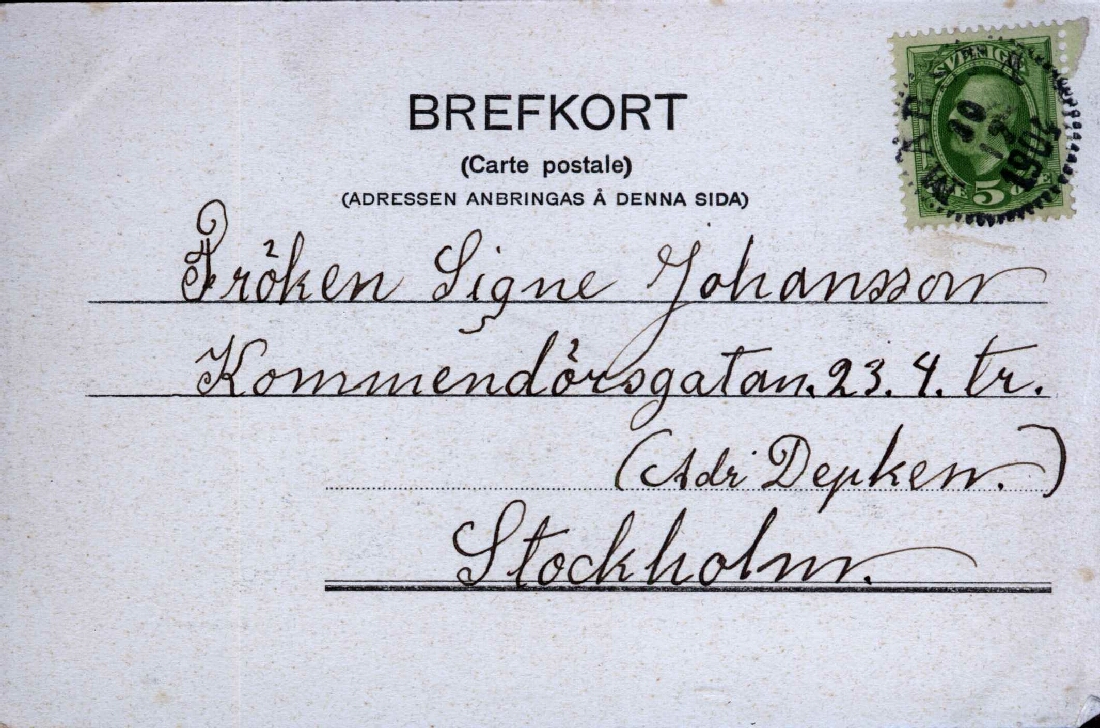 BREFKORT
(Carte postale)
(ADRESSEN ANBRINGAS Å DENNA SIDA)
SVERIGE
5
1903
Fröken Signe Johansson
Kommendörsgatan. 23. 4. tr.
(Adr. Depken.)
Stockholm.